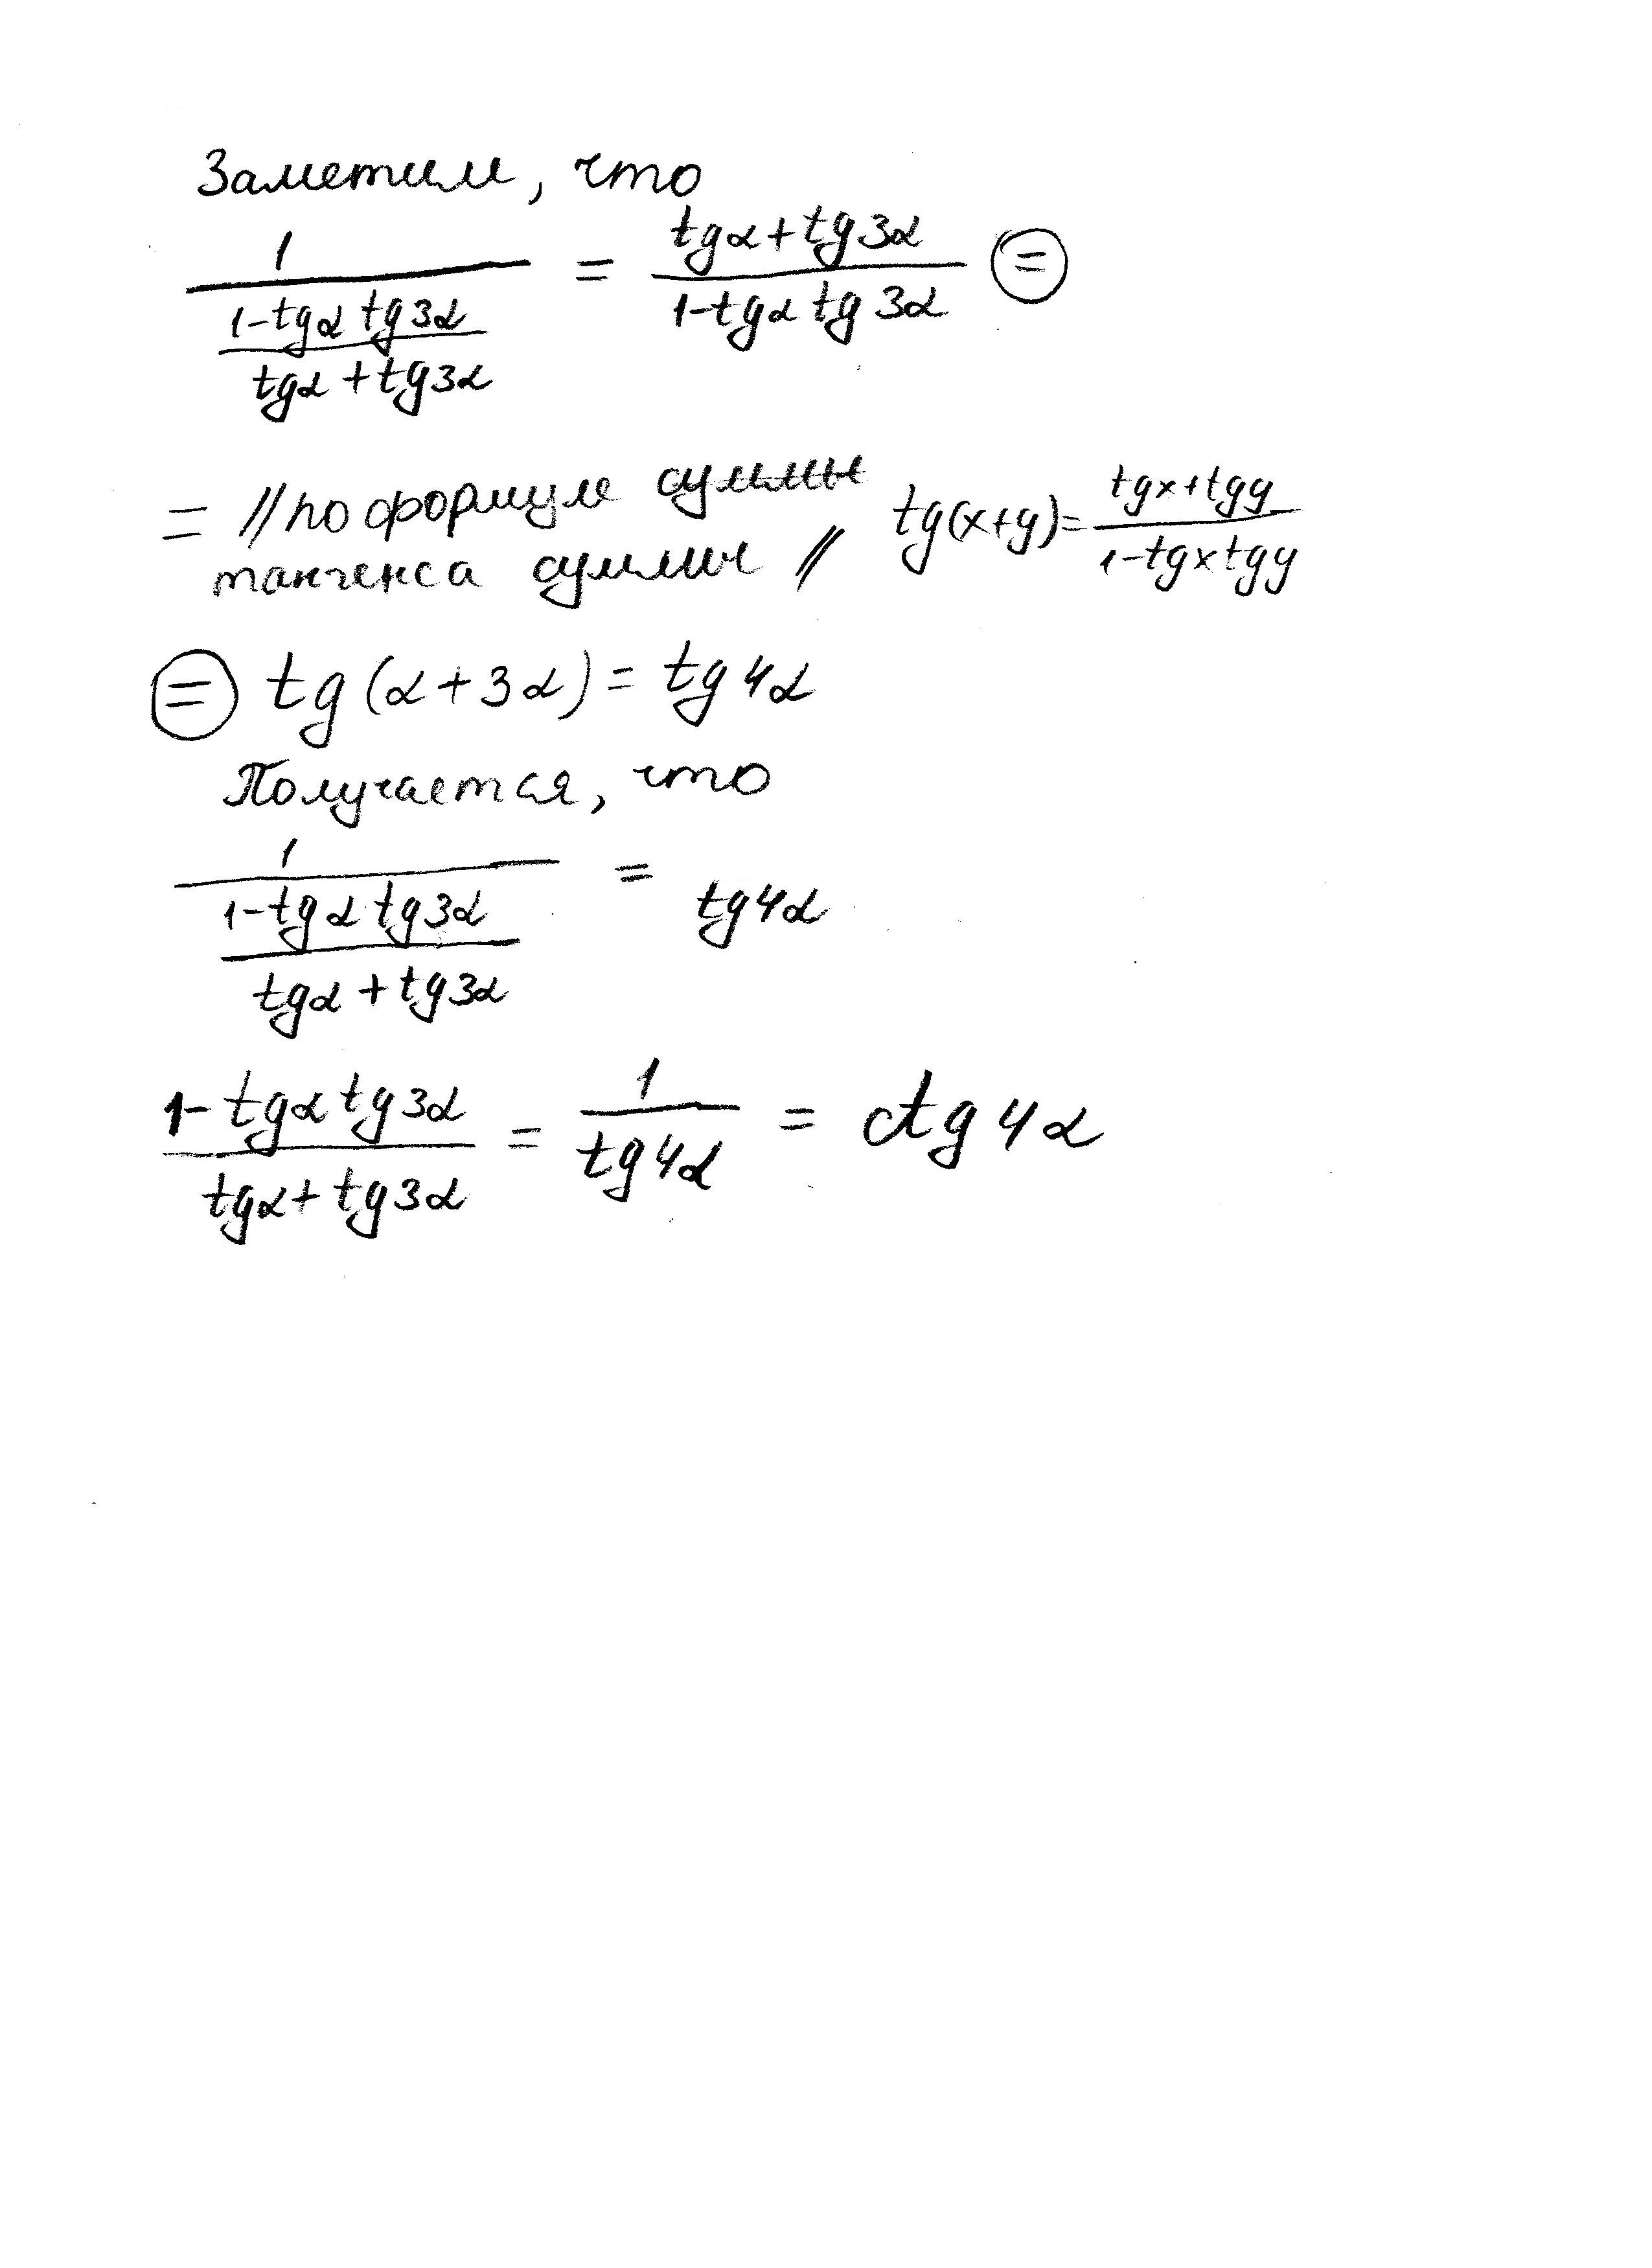 Заметим, что
1 / ((1-tgα tg3α) / (tgα + tg3α)) = (tgα + tg3α) / (1-tgα tg3α) =
= // по формуле суммы
тангенса суммы // tg(x+y) = (tgx+tgy) / (1-tgx tgy)
= tg(α+3α) = tg4α
Получается, что
1 / ((1-tgα tg3α) / (tgα + tg3α)) = tg4α
(1-tgα tg3α) / (tgα + tg3α) = 1 / tg4α = ctg4α